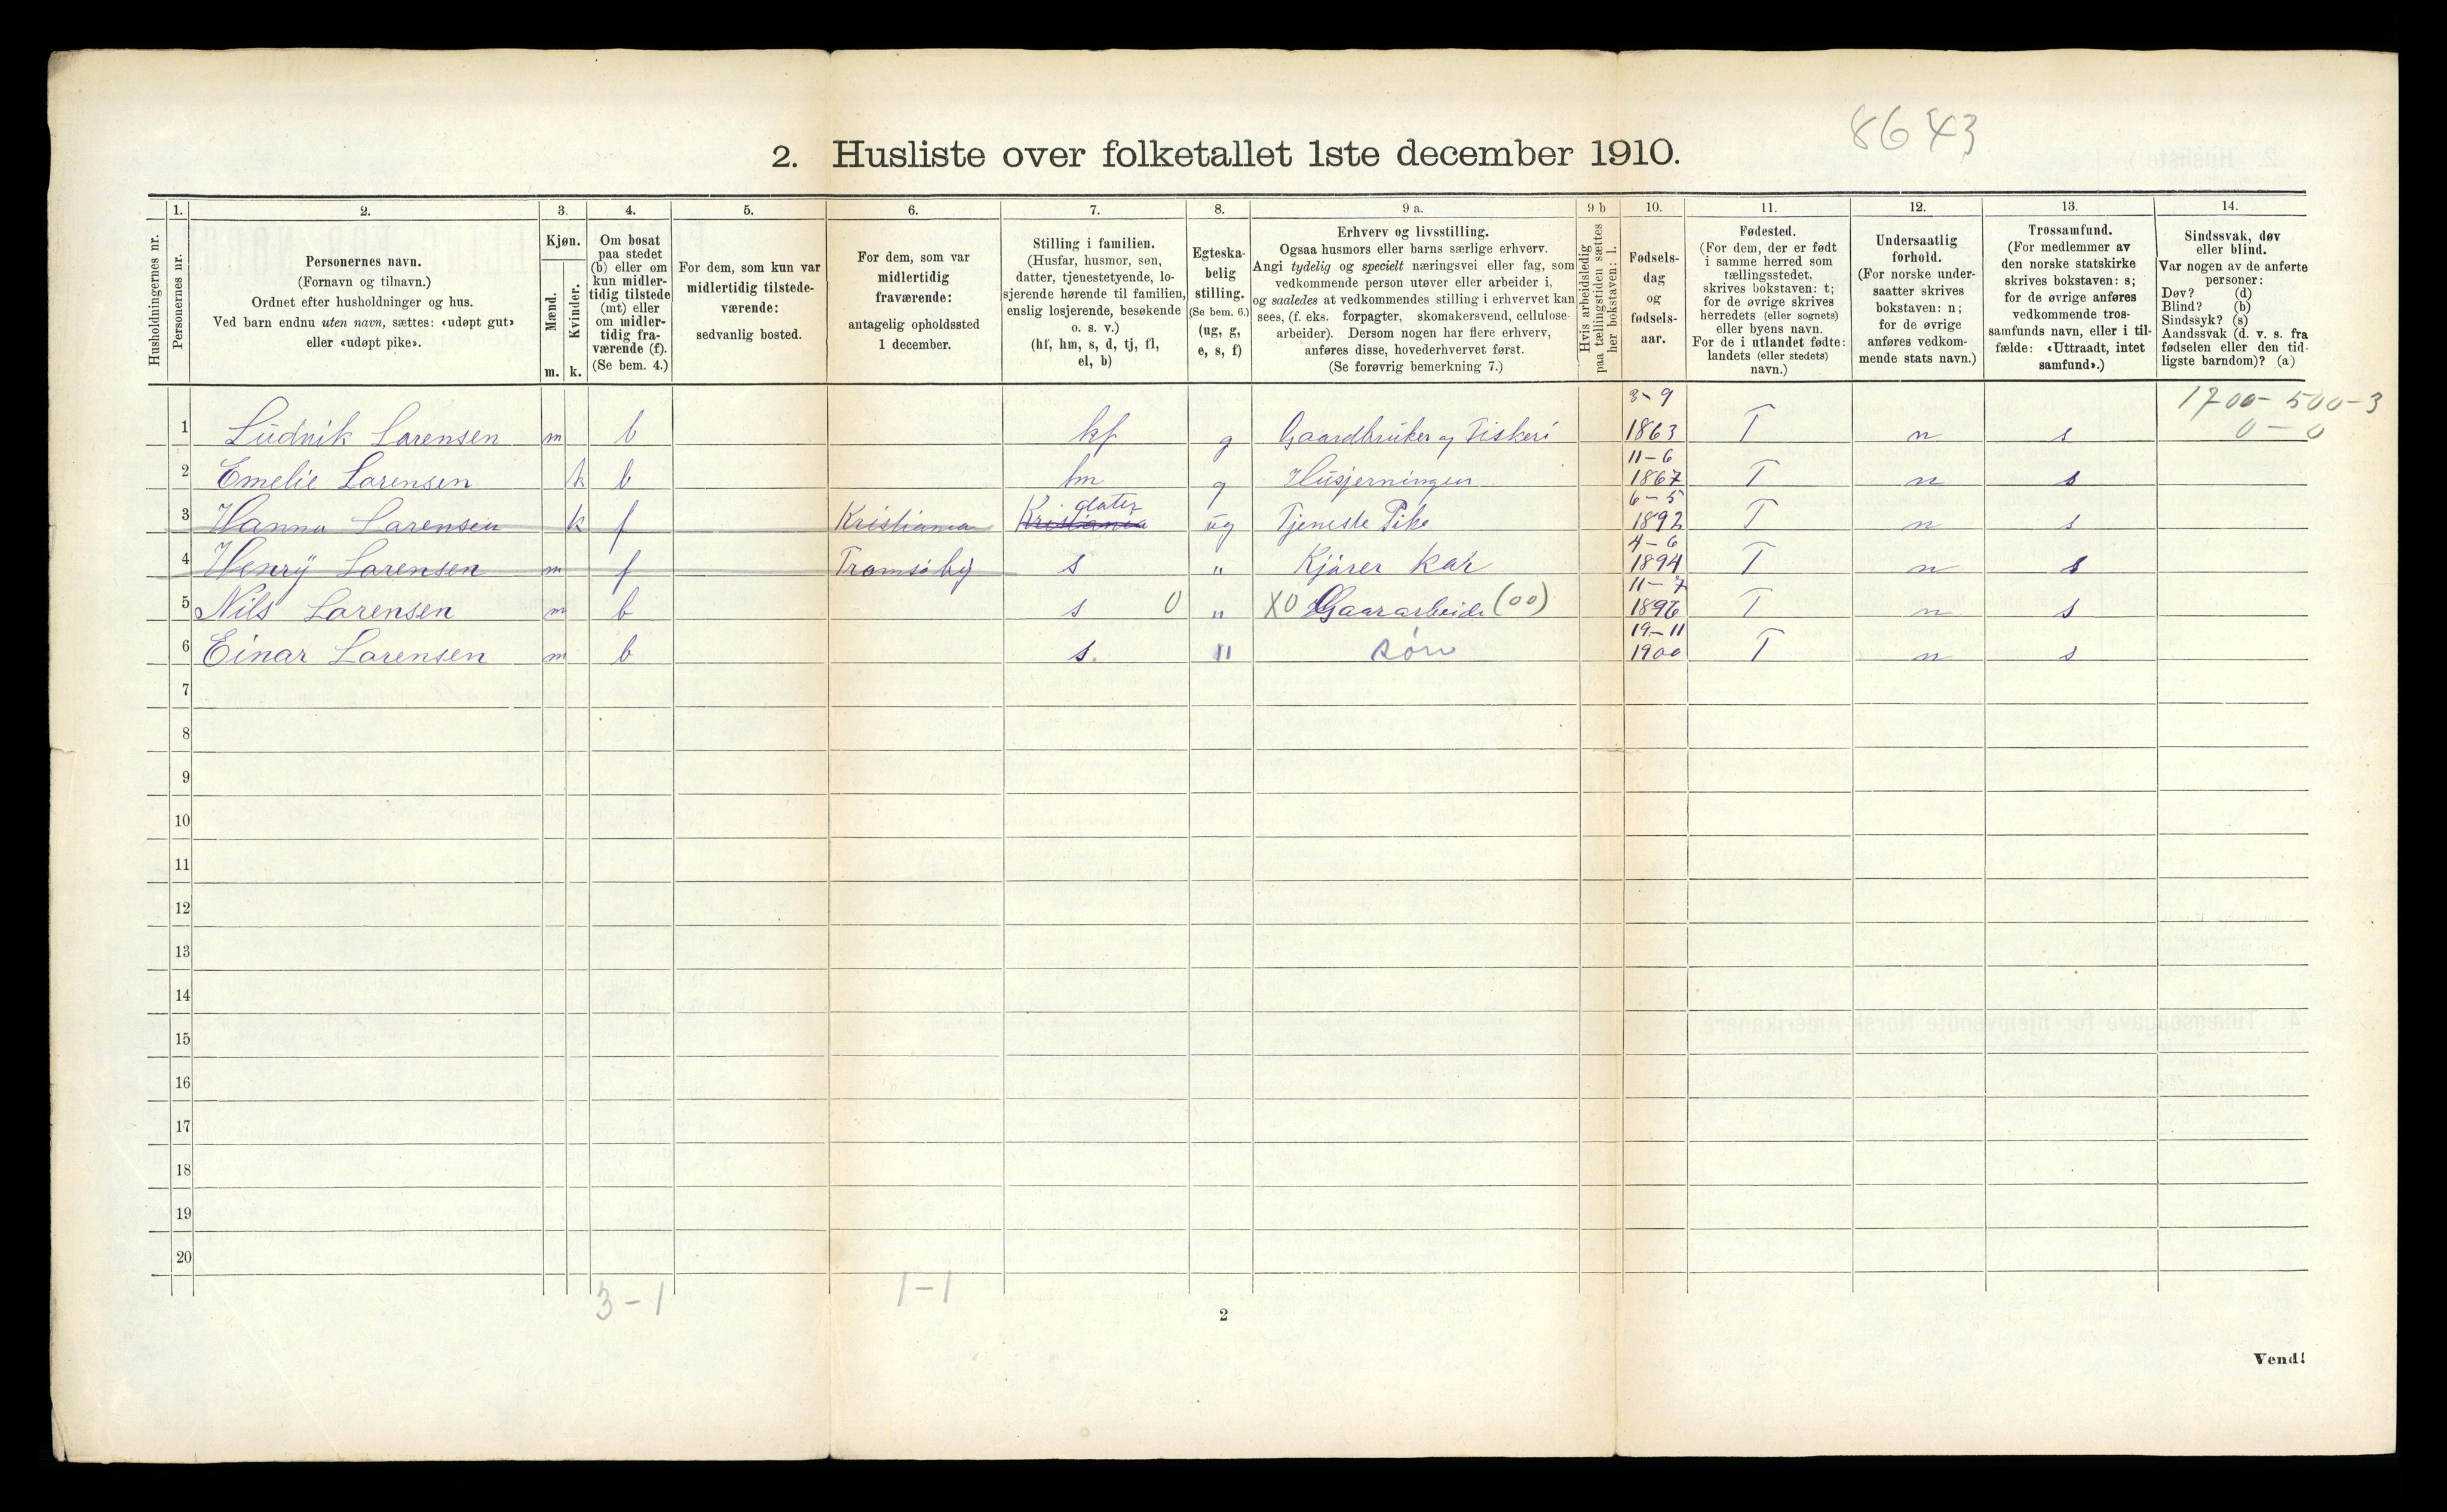 8643
2. Husliste over folketallet 1ste december 1910.
Husholdningernes nr.
1.
Personernes nr.
2.
Personernes navn.
(Fornavn og tilnavn.)
Ordnet efter husholdninger og hus.
Ved barn endnu uten navn, sættes: «udøpt gut»
eller «udøpt pike».
3.
Kjøn.
Mænd.
Kvinder.
m. k.
4.
Om bosat
paa stedet
(b) eller om
kun midler-
tidig tilstede
(mt) eller
om midler-
tidig fra-
værende (f).
(Se bem. 4.)
5.
For dem, som kun var
midlertidig tilstede-
værende:
sedvanlig bosted.
6.
For dem, som var
midlertidig
fraværende:
antagelig opholdssted
1 december.
7.
Stilling i familien.
(Husfar, husmor, søn,
datter, tjenestetyende, lo-
sjerende hørende til familien,
enslig losjerende, besøkende
o. s. v.)
(hf, hm, s, d, tj, fl,
el, b)
8.
Egteska-
belig
stilling.
(Se bem. 6.)
(ug, g,
e, s, f)
9 a.
Erhverv og livsstilling.
Ogsaa husmors eller barns særlige erhverv.
Angi tydelig og specielt næringsvei eller fag, som
vedkommende person utøver eller arbeider i,
og saaledes at vedkommendes stilling i erhvervet kan
sees, (f. eks. forpagter, skomakersvend, cellulose-
arbeider). Dersom nogen har flere erhverv,
anføres disse, hovederhvervet først.
(Se forøvrig bemerkning 7.)
9 b
Hvis arbeidsledig
paa tællingstiden sættes
her bokstaven: l.
10.
Fødsels-
dag
og
fødsels-
aar.
11.
Fødested.
(For dem, der er født
i samme herred som
tællingsstedet,
skrives bokstaven: t;
for de øvrige skrives
herredets (eller sognets)
eller byens navn.
For de i utlandet fødte:
landets (eller stedets)
navn.)
12.
Undersaatlig
forhold.
(For norske under-
saatter skrives
bokstaven: n;
for de øvrige
anføres vedkom-
mende stats navn.)
13.
Trossamfund.
(For medlemmer av
den norske statskirke
skrives bokstaven: s;
for de øvrige anføres
vedkommende tros-
samfunds navn, eller i til-
fælde: «Uttraadt, intet
samfund».)
14.
Sindssvak, døv
eller blind.
Var nogen av de anførte
personer:
Døv? (d)
Blind? (b)
Sindssyk? (s)
Aandssvak (d. v. s. fra
fødselen eller den tid-
ligste barndom)? (a)
1700-500-3
0-0
1 Ludvik Lorensen m b hf g Gaardbruker og Fiskeri 3-9 1863 T n s
2 Emelie Lorensen k b hm g Husjerningen 11-6 1867 T n s
3 Hanna Lorensen k f Kristiania Kristiania dater ug Tjeneste Pike 6-5 1892 T n s
4 Henry Lorensen m f Tromsø by s " Kjører kar 4-6 1894 T n s
5 Nils Lorensen m b s 0 " X0 Gaararbeide (00) 11-7 1896 T n s
6 Einar Lorensen m b s. " søn 19-11 1900 T n s
7
8
9
10
11
12
13
14
15
16
17
18
19
20
3-1
1-1
2
Vend!